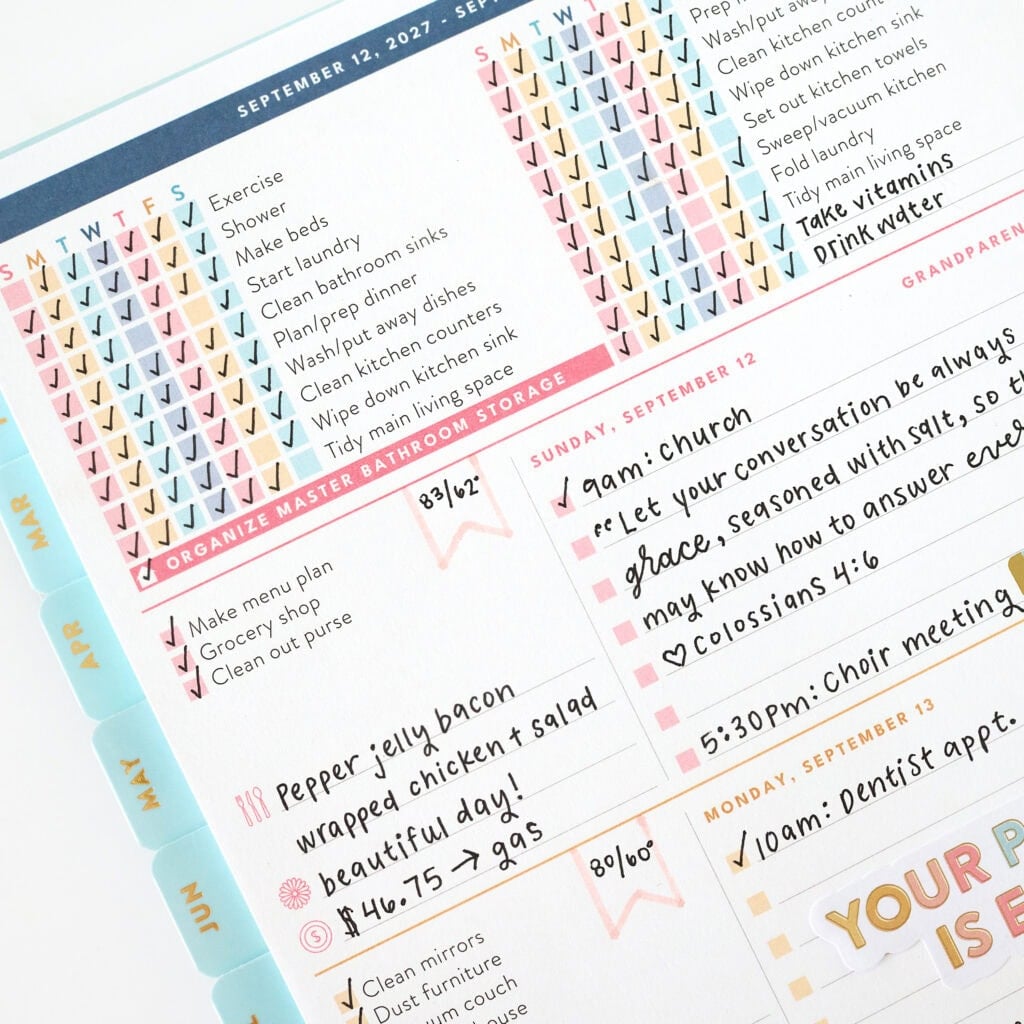 SEPTEMBER 12, 2027 -
S M T W T F S
Exercise
Shower
Make beds
Start laundry
Clean bathroom sinks
Plan/prep dinner
Wash/put away dishes
Clean kitchen counters
Wipe down kitchen sink
Tidy main living space
S M T W T
Prep
Wash/put away
Clean kitchen count
Wipe down kitchen sink
Set out kitchen towels
Sweep/vacuum kitchen
Fold laundry
Tidy main living space
Take vitamins
Drink water
ORGANIZE MASTER BATHROOM STORAGE
83/62°
Make menu plan
Grocery shop
Clean out purse
Pepper jelly bacon
wrapped chicken + salad
beautiful day!
$46.75 → gas
GRANDPAREN
SUNDAY, SEPTEMBER 12
9am: Church
"Let your conversation be always
grace, seasoned with salt, so th
may know how to answer ever
♡ Colossians 4:6
5:30pm: Choir meeting
80/60°
Clean mirrors
Dust furniture
um couch
house
MONDAY, SEPTEMBER 13
10am: Dentist appt.
YOUR P
IS E
MAR
APR
MAY
JUN